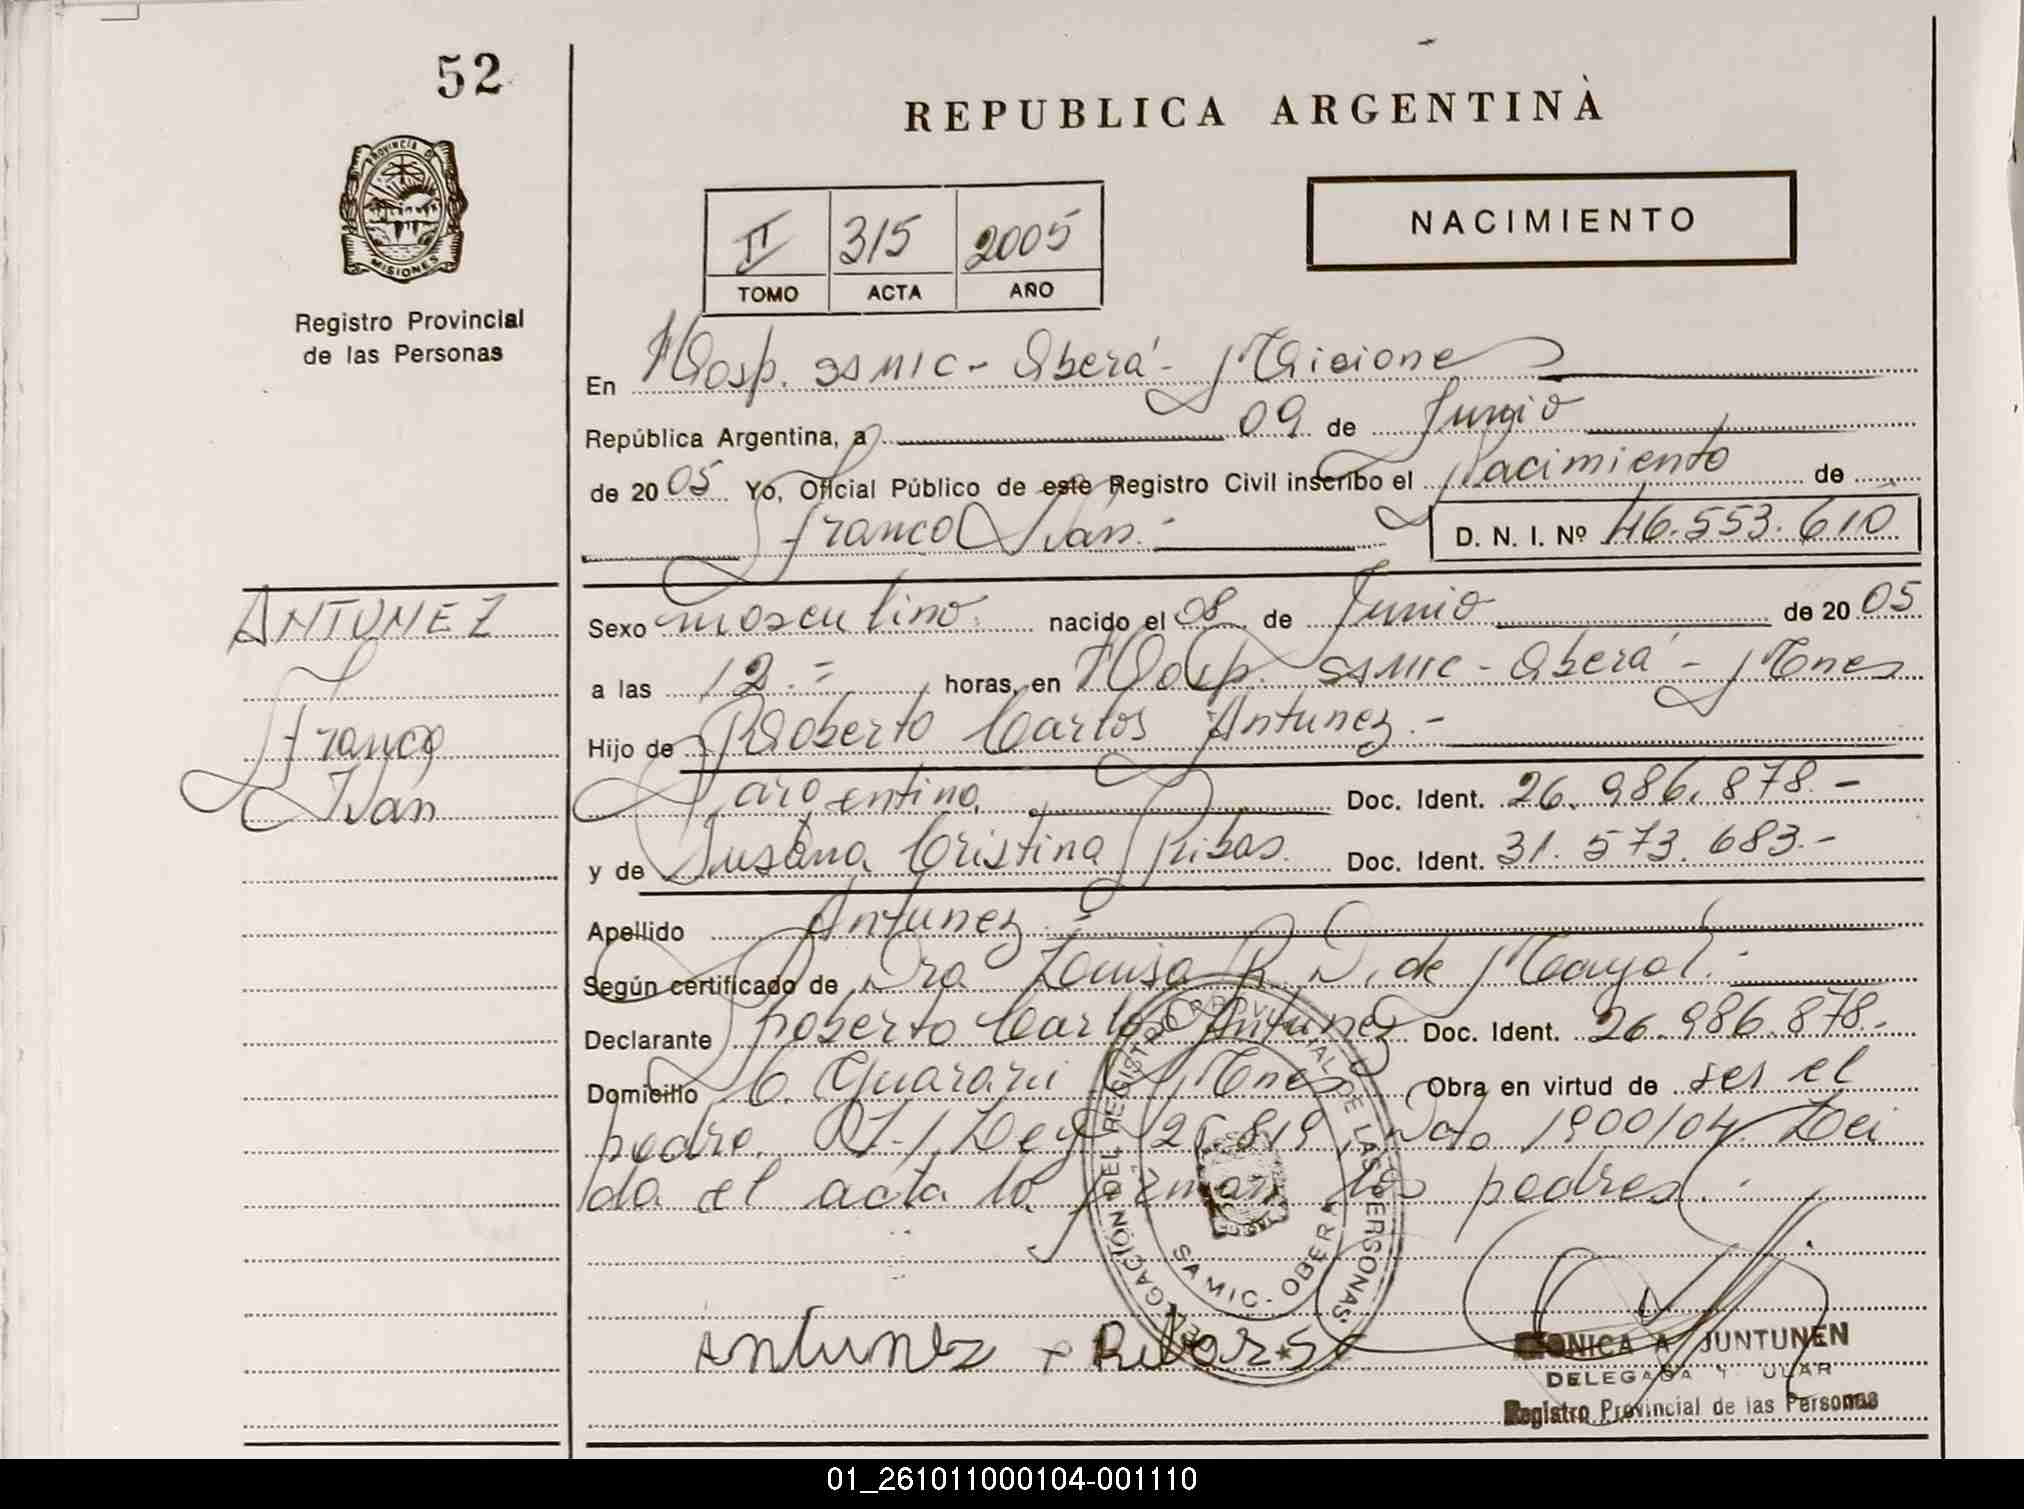 52
REPUBLICA ARGENTINA
PROVINCIA DE
MISIONES
Registro Provincial
de las Personas
NACIMIENTO
II 315 2005
TOMO ACTA AÑO
En Hosp. SAMIC - Oberá - Misiones
República Argentina, a 09 de Junio
de 2005 Yo, Oficial Público de este Registro Civil inscribo el Nacimiento de
Franco Iván.- D. N. I. Nº 46.553.610
ANTUNEZ
Franco
Iván
Sexo masculino nacido el 08 de Junio de 2005
a las 12.= horas, en Hosp. SAMIC - Oberá - Mnes
Hijo de Roberto Carlos Antunez.-
argentino Doc. Ident. 26.986.878.-
y de Susana Cristina Ribas. Doc. Ident. 31.573.683.-
Apellido Antunez.-
Según certificado de Dra Luisa R. D. de Mayol.-
Declarante Roberto Carlos Antunez Doc. Ident. 26.986.878.-
Domicilio C. Guaraní Mnes Obra en virtud de ser el
padre. Ley 25.819, Dcto 1900/04. Leí
da el acta la firman los padres.-
DELEGACIÓN DEL REGISTRO PROVINCIAL DE LAS PERSONAS
SAMIC - OBERA
Antunez + Ribas
MONICA A JUNTUNEN
DELEGADA TITULAR
Registro Provincial de las Personas
01_261011000104-001110